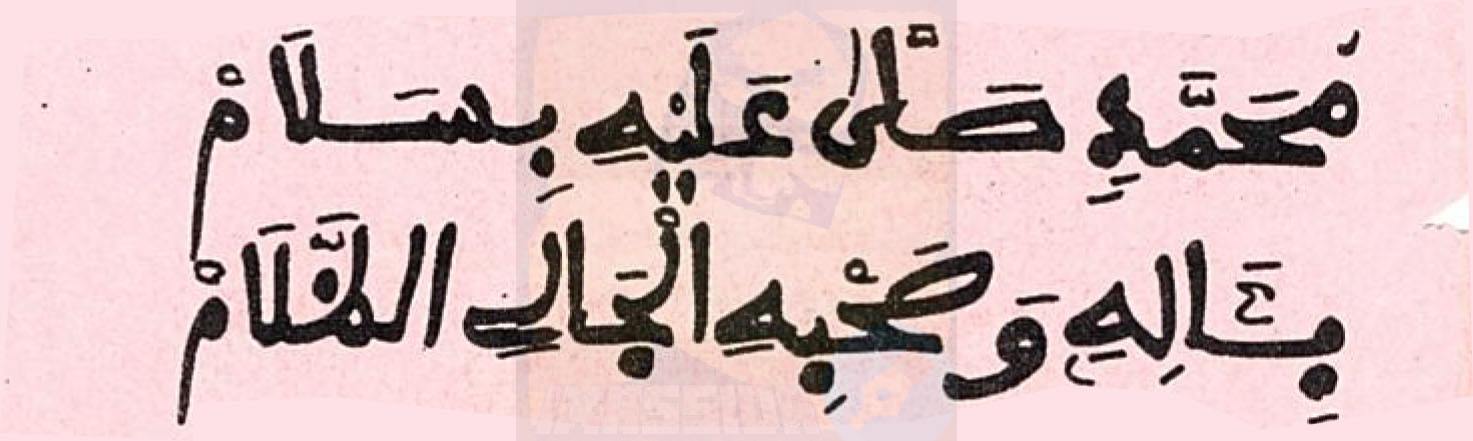 مُحَمَّدٍ صَلَّىٰ عَلَيْهِ بِسَلَامْ
بِـَٔالِهِ وَصَحْبِهِ الْجَالِے الظَّلَامْ